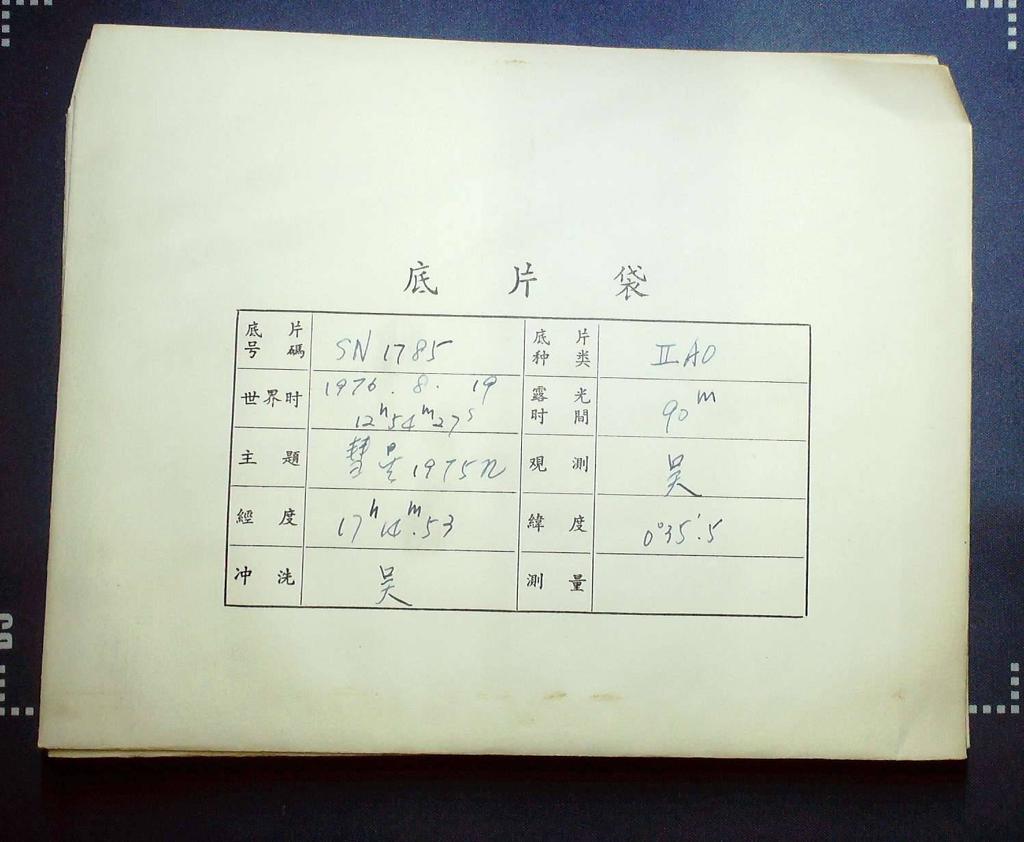 底片袋
底片号碼 SN 1785 底片种类 II AO
世界时 1976.8.19 12h54m27s 露光时間 90m
主題 彗星1975n 观測 吴
經度 17h14m.53 緯度 0°35'.5
冲洗 吴 測量